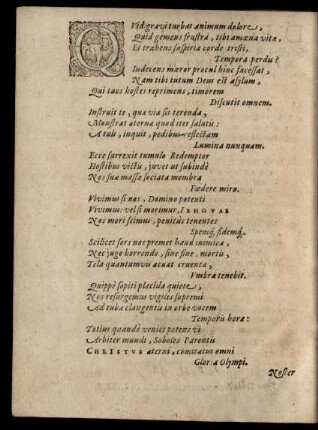 QVid gravi turbas animum dolore,
Quid gemens frustra, tibi amœna vita,
Et trahens suspiria corde tristi,
Tempora perdu?
Indecens mœror procul hinc facessat,
Nam tibi tutum Deus est asylum,
Qui tuos hostes reprimens, timorem
Discutit omnem.
Instruit te, qua via sit terenda,
Monstrat æternæ quod iter salutis:
A tuis, inquit, pedibus reflectam
Lumina nunquam.
Ecce surrexit tumulo Redemptor
Hostibus victis, juvet ut subinde
Nos suæ massæ sociata membra
Fœdere miro.
Vivimus si nos, Domino potenti
Vivimus: vel si morimur, IEHOVAE
Nos mori scimus, penitus tenentes
Spemq́, fidemq́.
Scilicet sors nos premet haud inimica,
Nec jugo horrendo, sine fine, mortis,
Tela quantumvis acuat cruenta,
Vmbra tenebit.
Quippè sopiti placida quiete,
Nos resurgemus vigiles supremi
Ad tubæ clangentis in orbe vocem
Temporis hora:
Totius quandò veniet potens vi
Arbiter mundi, Soboles Parentis
CHRISTVS æterni, comitatus omni
Gloria Olympi.
Noster